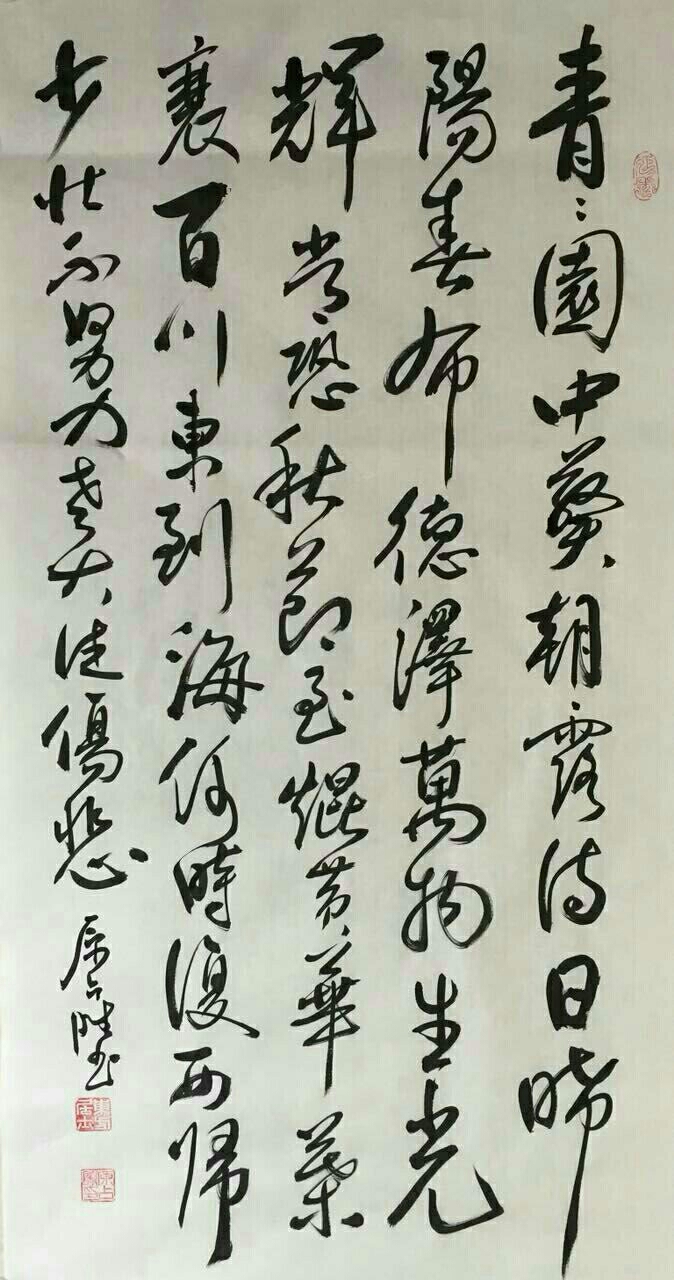 青々園中葵朝露待日晞
陽春布德澤萬物生光
輝常恐秋節至焜黄華葉
衰百川東到海何時復西歸
少壯不努力老大徒傷悲
书